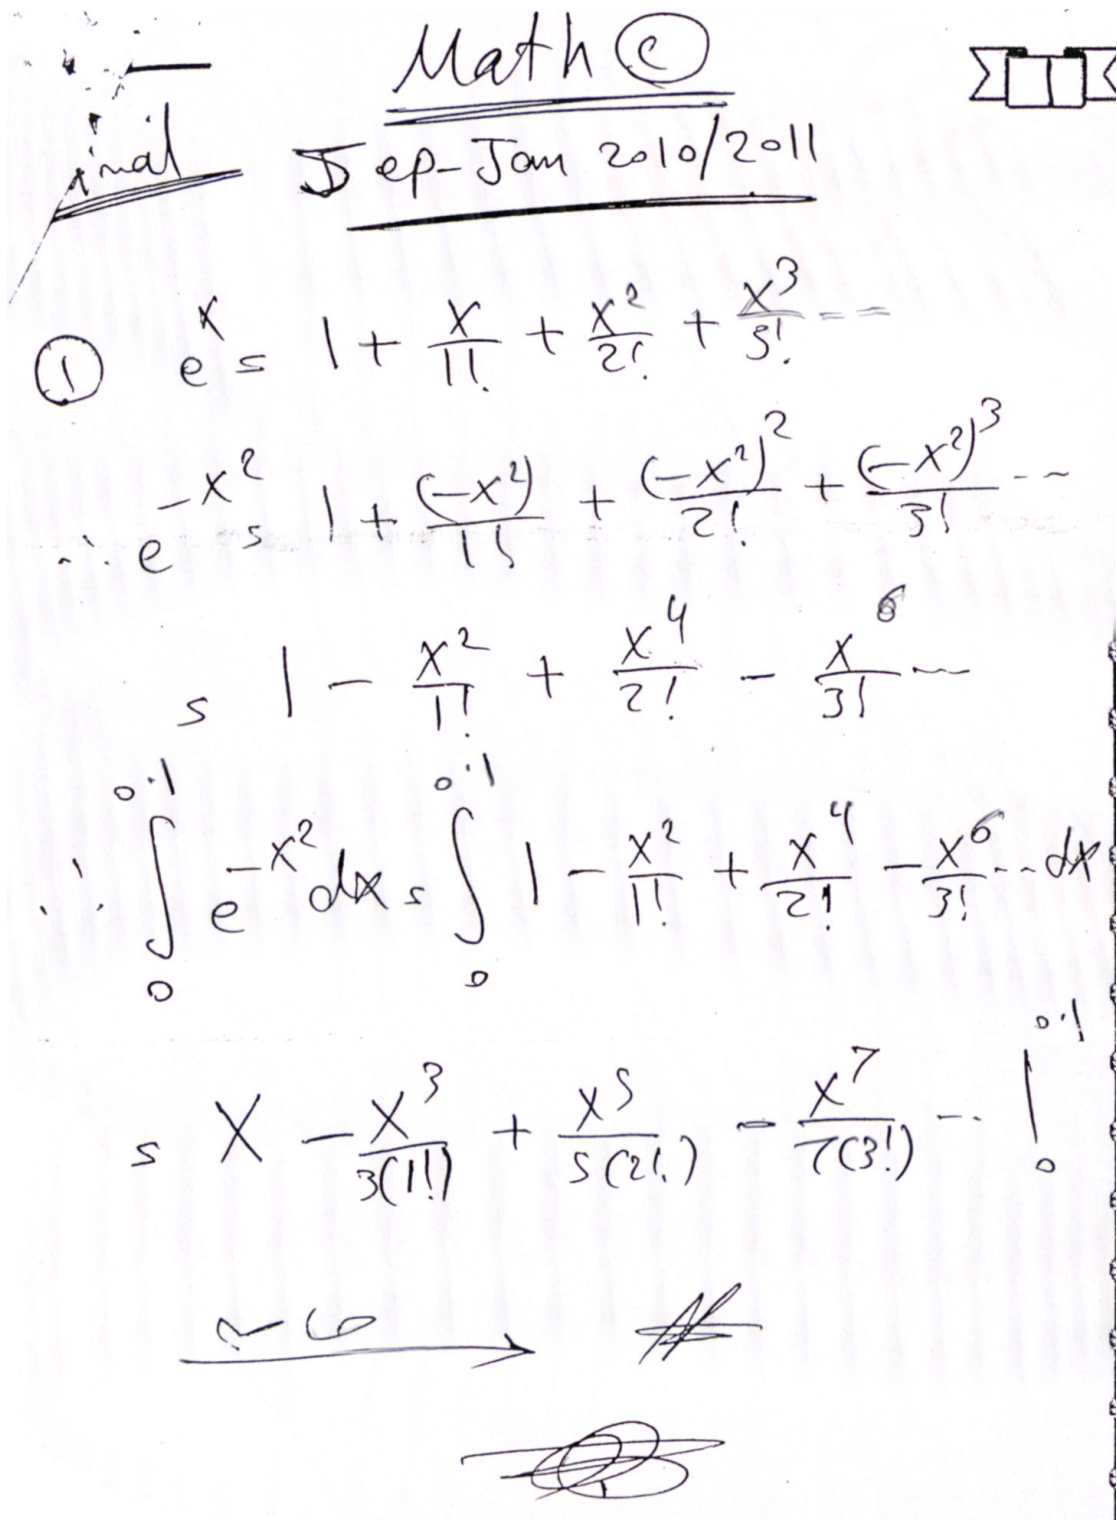 Math ©
inal
Sep-Jan 2010/2011
① e^x = 1 + x/1! + x^2/2! + x^3/3! ---
∴ e^-x^2 = 1 + (-x^2)/1! + (-x^2)^2/2! + (-x^2)^3/3! ---
= 1 - x^2/1! + x^4/2! - x^6/3! ---
∴ ∫_0^0.1 e^-x^2 dx = ∫_0^0.1 1 - x^2/1! + x^4/2! - x^6/3! --- dx
= x - x^3/3(1!) + x^5/5(2!) - x^7/7(3!) --- |_0^0.1